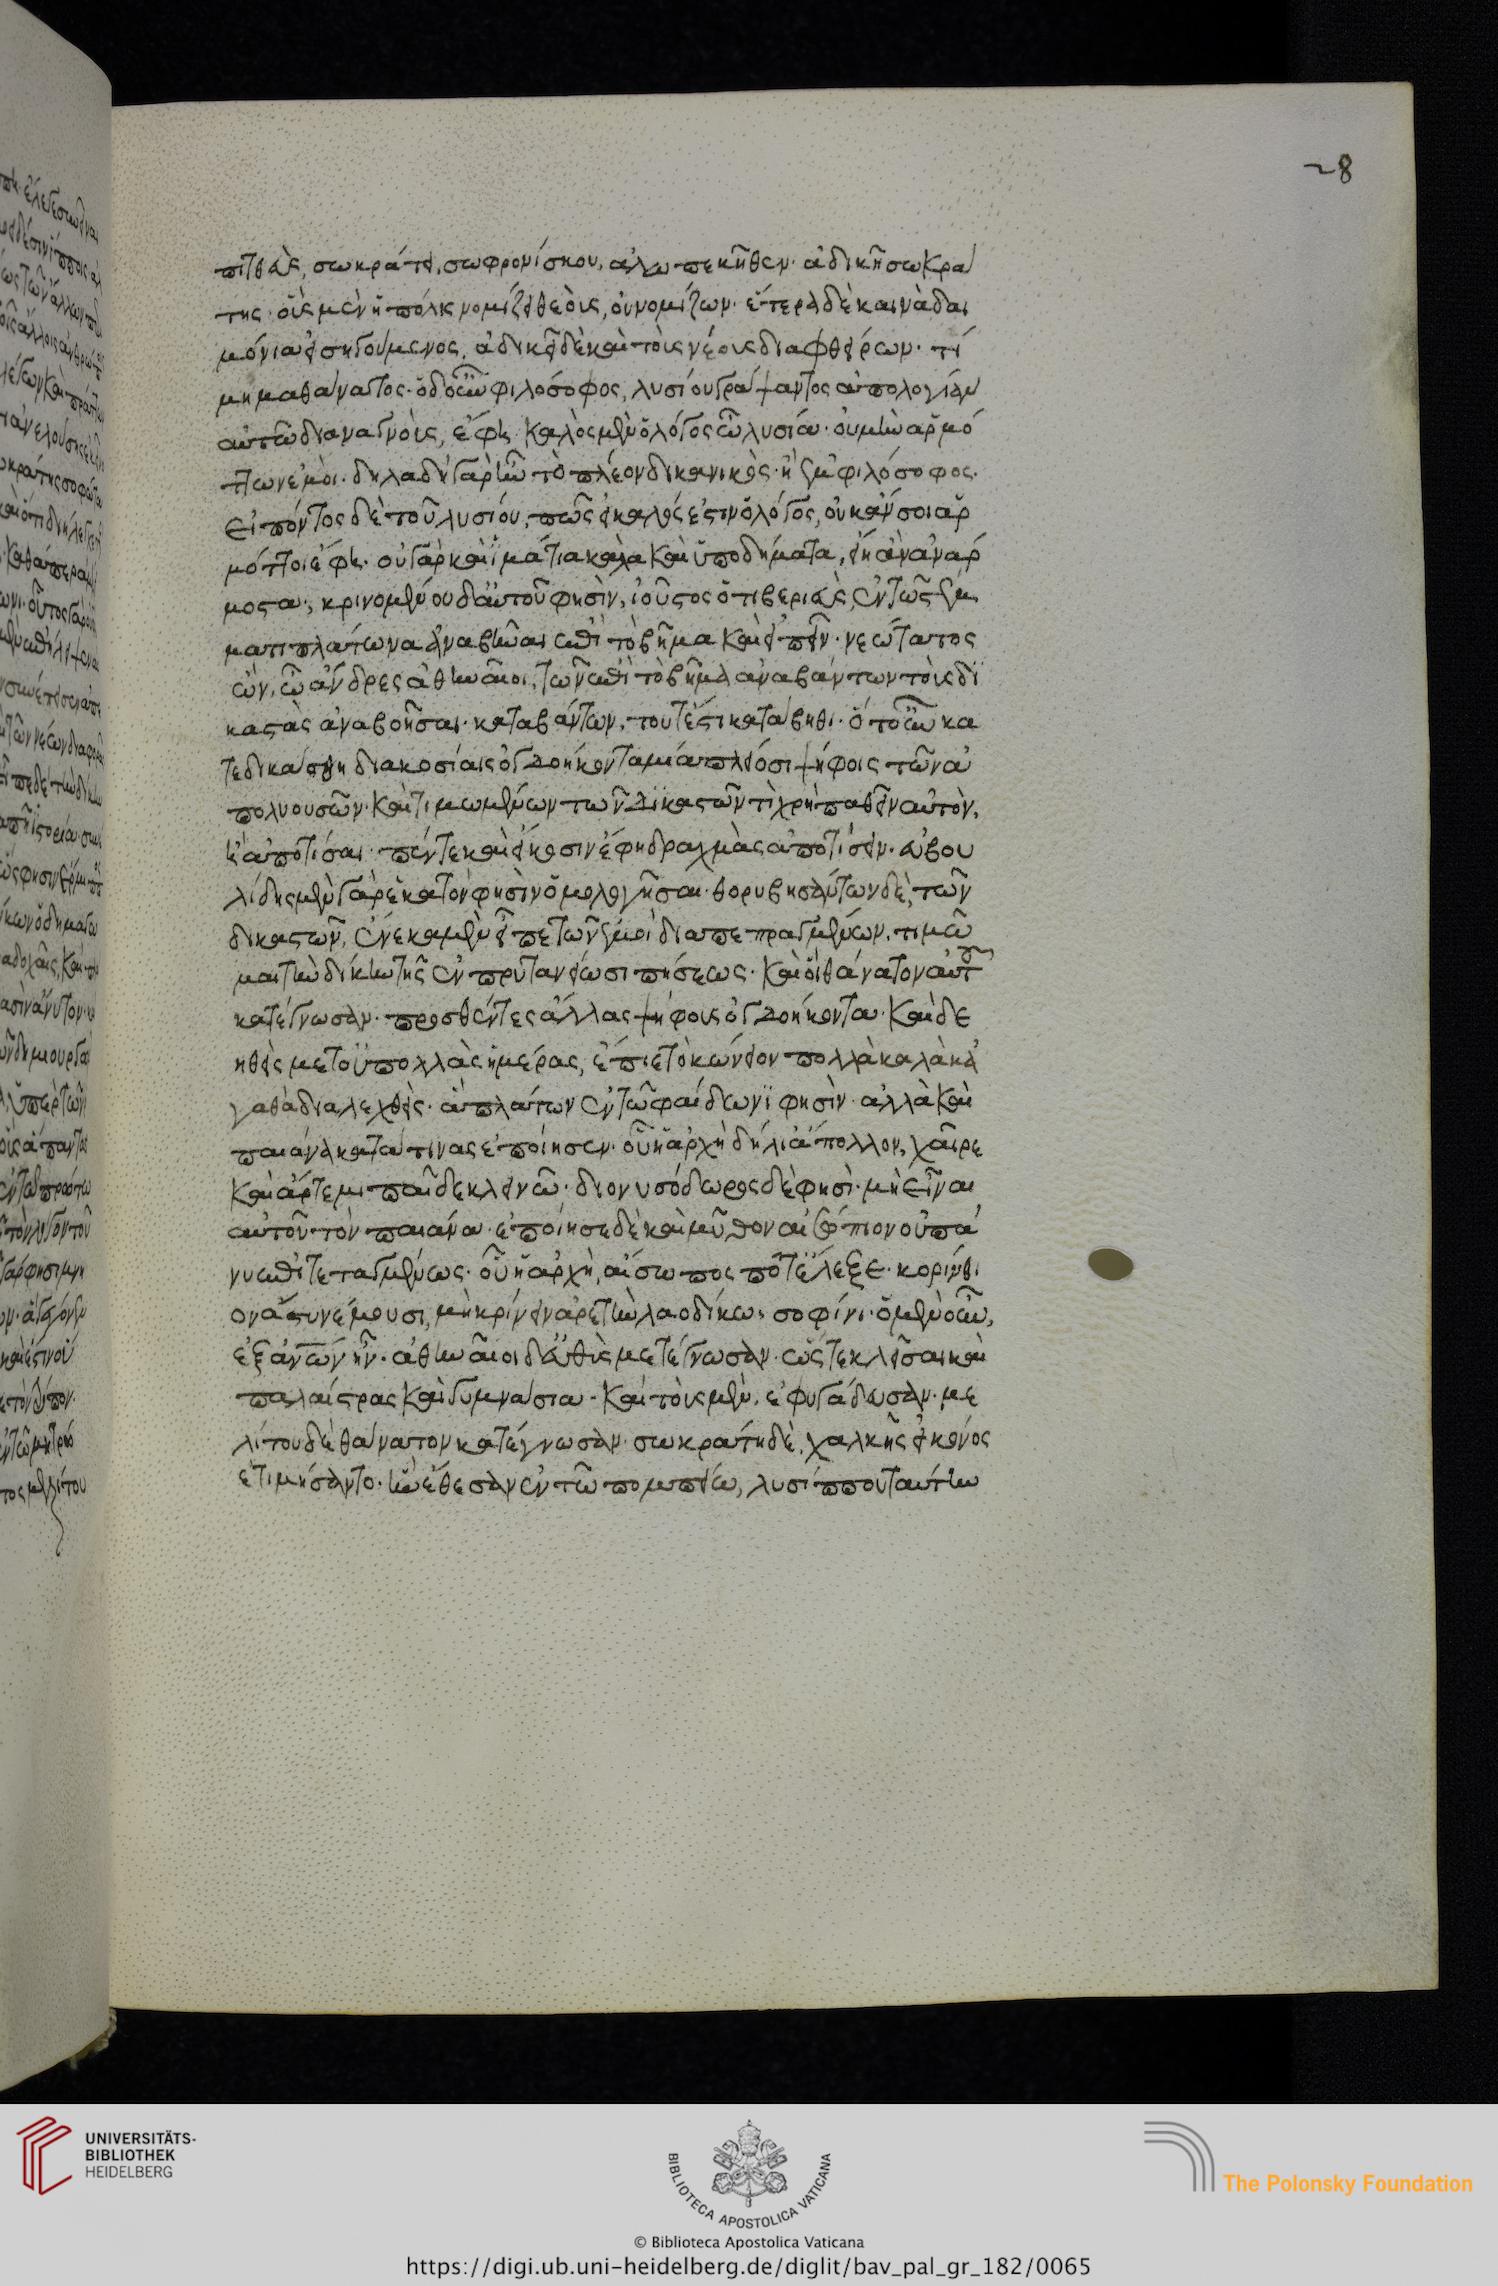 28
πιτθεὺς, σωκράτει, σωφρονίσκου, ἀλωπεκῆθεν· ἀδικῆ σωκρά
της· οὓς μὲν ἡ πόλις νομίζει θεοὺς, οὐ νομίζων· ἕτερα δὲ καινὰ δαι
μόνια εἰσηγούμενος, ἀδικεῖ δὲ καὶ τοὺς νέους διαφθείρων· τί
μημα θάνατος· ὁ δ' οὖν φιλόσοφος, λυσίου γράψαντος ἀπολογίαν
αὐτῶ διαναγνοὺς, ἔφη. καλὸς μὲν ὁ λόγος ὦ λυσία· οὐ μὴν ἁρμό
ττων ἐμοι· δηλαδὴ γὰρ ἦν τὸ πλέον δικανικὸς· ἢ ἐμφιλόσοφος.
εἰπόντος δὲ τοῦ λυσίου, πῶς εἰ καλός ἐστιν ὁ λόγος, οὐκ ἄν σοι ἁρ
μόττοι ἔφη. οὐ γὰρ καὶ ἱμάτια καλὰ καὶ ὑποδήματα, εἴη ἂν ἀνάρ
μοστα, κρινομένου δ' αὐτοῦ φησὶν, ἰοῦστος ὁ τιβεριεὺς, ἐν τῶ στέμ
ματι πλάτωνα ἀναβῆναι ἐπὶ τὸ βῆμα καὶ εἰπεῖν· νεώτατος
ὢν, ὦ ἄνδρες ἀθηναῖοι, τῶν ἐπὶ τὸ βῆμα ἀναβάντων τοὺς δι
καστὰς ἀναβοῆσαι· καταβάντων, τουτέστι κατάβηθι· ὅτ' οὖν κα
τεδικάσθη διακοσίαις ὀγδοήκοντα μιᾶ πλείοσι ψήφοις τῶν ἀ
πολυουσῶν· καὶ τιμωμένων τῶν δικαστῶν τὶ χρὴ παθεῖν αὐτὸν,
ἢ ἀποτίσαι· πέντε καὶ εἴκοσιν ἔφη δραχμὰς ἀποτίσειν. εὐβου
λίδης μὲν γὰρ ἑκατόν φησὶν ὁμολογῆσαι. θορυβησάντων δὲ, τῶν
δικαστῶν, ἕνεκα μὲν εἶπε τῶν ἐμοὶ διαπεπραγμένων, τιμῶ
μαι τὴν δίκην τῆς ἐν πρυτανείω σιτήσεως· καὶ οἱ θάνατον αὐτοῦ
κατέγνωσαν· προσθέντες ἄλλας ψήφους ὀγδοήκοντα. καὶ δε
θεὶς μετ' οὐ πολλὰς ἡμέρας, ἔπιε τὸ κώνειον πολλὰ καλὰ κἀ
γαθὰ διαλεχθεὶς· ἃ πλάτων ἐν τῶ φαίδωνί φησὶν. ἀλλὰ καὶ
παιάνα κατά τινας ἐποίησεν· οὗ ἡ ἀρχὴ δήλι' ἄπολλον, χαῖρε
καὶ ἄρτεμι παῖδε κλεινώ. διονυσόδωρος δὲ φησὶ· μὴ εἶναι
αὐτοῦ τὸν παιάνα· ἐποίησε δὲ καὶ μῦθον αἰσώπιον οὐ πά
νυ ἐπιτεταγμένως· οὗ ἡ ἀρχὴ, αἴσωπος πότ' ἔλεξε· κορίνθι
ον ἄστυ νέμουσι, μὴ κρίνειν ἀρετὴν λαοδίκω, σοφίηι· ὁ μὲν οὖν,
ἐξ ἀν̅ω̅ν ἦν. ἀθηναῖοι δ' εὐθὺς μετέγνωσαν· ὥστε κλεῖσαι καὶ
παλαίστρας καὶ γυμνάσια. καὶ τοὺς μὲν, ἐφυγάδευσαν· με
λίτου δὲ θάνατον κατέγνωσαν. σωκράτη δὲ, χαλκῆς εἰκόνος
ἐτιμήσαντο· ἣν ἔθεσαν ἐν τῶ πομπείω, λυσίππου ταύτην
UNIVERSITÄTS-
BIBLIOTHEK
HEIDELBERG
BIBLIOTECA APOSTOLICA VATICANA
The Polonsky Foundation
© Biblioteca Apostolica Vaticana
https://digi.ub.uni-heidelberg.de/diglit/bav_pal_gr_182/0065